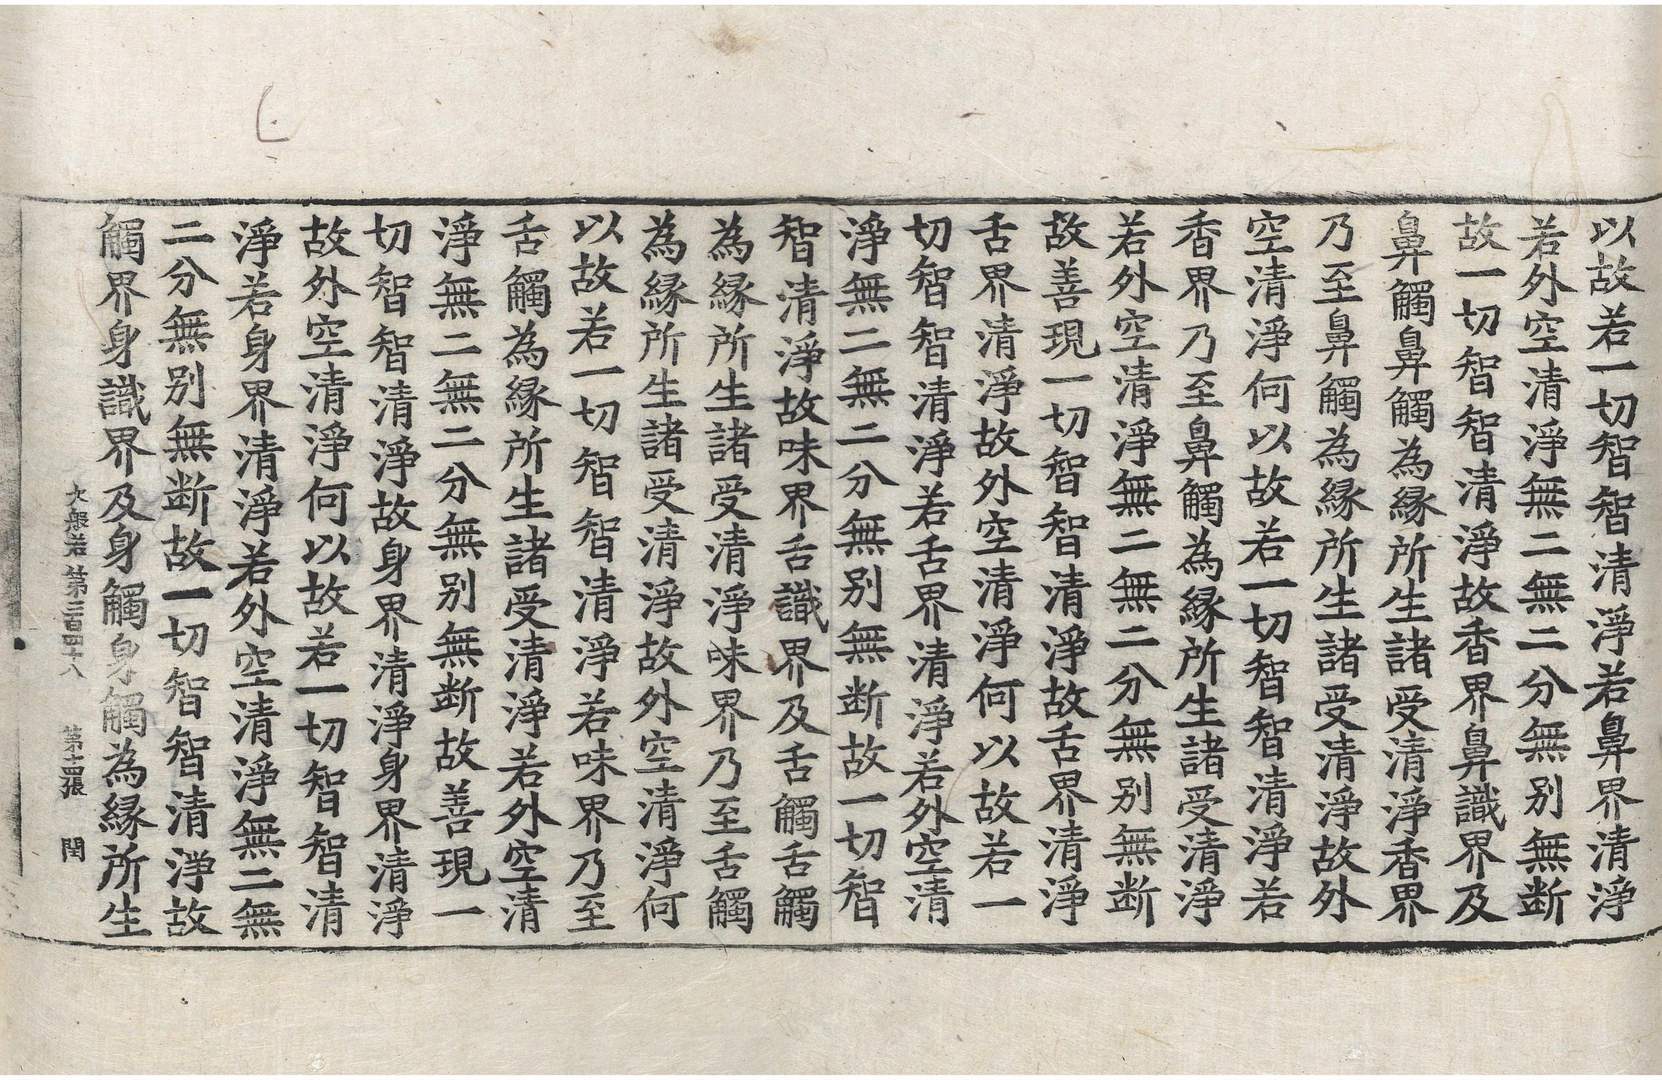 以故若一切智智清淨若鼻界清淨
若外空清淨無二無二分無别無断
故一切智智清淨故香界鼻識界及
鼻觸鼻觸為縁所生諸受清淨香界
乃至鼻觸為縁所生諸受清淨故外
空清淨何以故若一切智智清淨若
香界乃至鼻觸為縁所生諸受清淨
若外空清淨無二無二分無别無断
故善現一切智智清淨故舌界清淨
舌界清淨故外空清淨何以故若一
切智智清淨若舌界清淨若外空清
淨無二無二分無别無断故一切智
智清淨故味界舌識界及舌觸舌觸
為縁所生諸受清淨味界乃至舌觸
為縁所生諸受清淨故外空清淨何
以故若一切智智清淨若味界乃至
舌觸為縁所生諸受清淨若外空清
淨無二無二分無别無断故善現一
切智智清淨故身界清淨身界清淨
故外空清淨何以故若一切智智清
淨若身界清淨若外空清淨無二無
二分無别無断故一切智智清淨故
觸界身識界及身觸身觸為縁所生
大般若第二百四十八 第十四張 閏